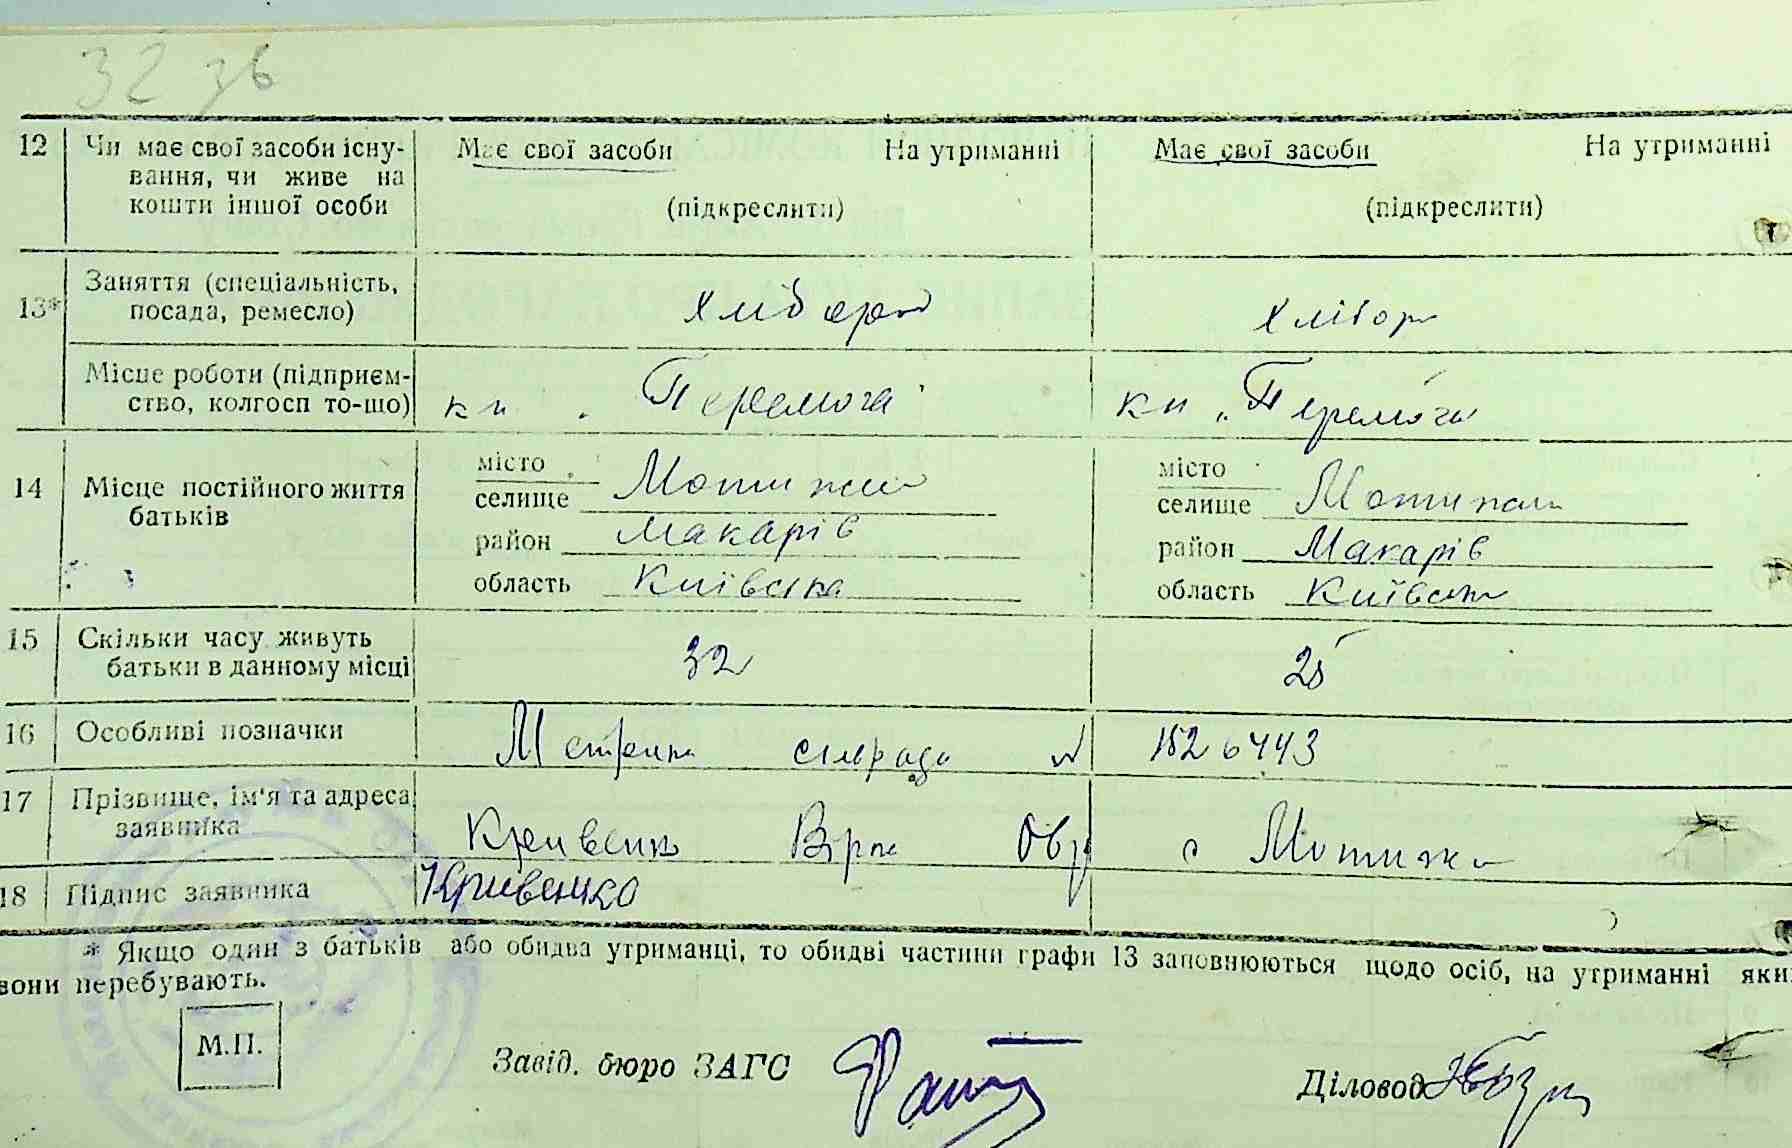 32 зв
12 Чи має свої засоби існу- Має свої засоби На утриманні Має свої засоби На утриманні
вання, чи живе на
кошти іншої особи (підкреслити) (підкреслити)
13* Заняття (спеціальність,
посада, ремесло) хлібороб хлібор
Місце роботи (підприєм-
ство, колгосп то-що) кп „Перемога" кп „Перемога"
14 Місце постійного життя місто місто
батьків селище Мотижин селище Мотижин
район Макарів район Макарів
область Київська область Київська
15 Скільки часу живуть
батьки в данному місці 32 25
16 Особливі позначки сільрада №
17 Прізвище, ім'я та адреса
заявника Кривенко Віра с Мотижин
18 Підпис заявника Кривенко
* Якщо один з батьків або обидва утриманці, то обидві частини графи 13 заповнюються щодо осіб, на утриманні яки
вони перебувають.
М.П.
Завід. бюро ЗАГС Діловод